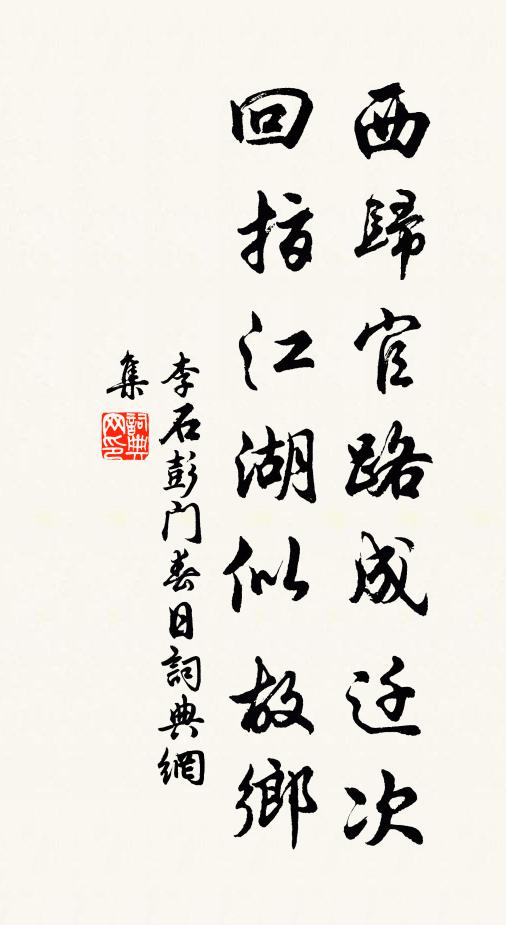 西歸官路成迁次
回指江湖似故鄉
李石彭门春日詞典網
集
詞典
网印